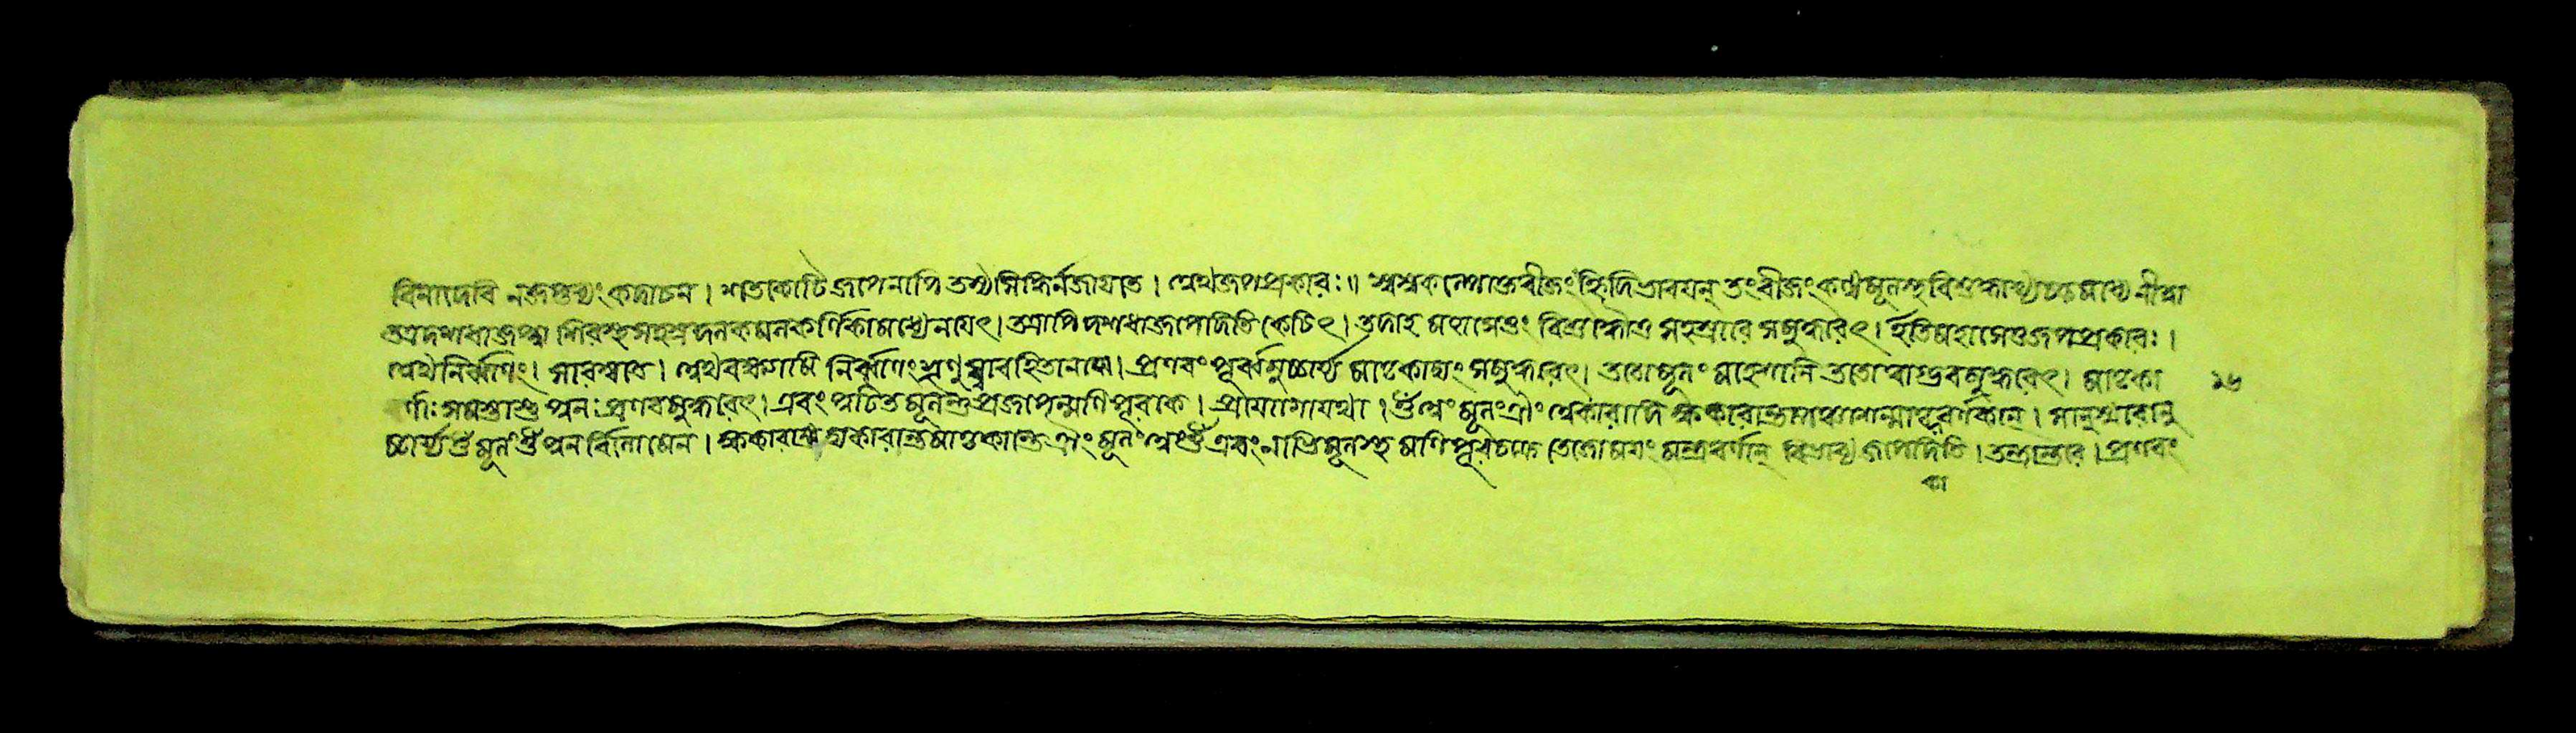 বিনাদেবি নজপ্তব্যং কদাচন। শতকোটি জপেনাপি তস্যসিদ্ধির্নজায়তে। অথজপপ্রকারঃ॥ স্বস্বকল্পোক্তবীজং হৃদিভাবয়ন্ তংবীজং কণ্ঠমূলস্থ বিশুদ্ধাখ্য নীত্বা
তত্রদশধাজপ্ত্বা শিরস্থসহস্রদলকমলকর্ণিকামধ্যেনয়েৎ। তত্রাপি দশধাজপেদিতি কেচিৎ। তদাহ মহাসেতুং বিশুদ্ধৌচ সহস্রারে সমুদ্ধরেৎ। ইতিমহাসেতুজপপ্রকারঃ।
অথনির্ব্বাণং। অথবক্ষ্যামি নির্ব্বাণং শৃণু সাবহিতানঘে। প্রণবং পূর্ব্বমুচ্চার্য্য মাতৃকাদ্যং সমুদ্ধরেৎ। ততোমূলং মাহেশানি ততো সমুদ্ধরেৎ। মাতৃকা ১৬
র্ণাঃ সমস্তাশ্চ পুনঃ প্রণবমুদ্ধরেৎ। এবং পুটিতমূলন্তু প্রজপেন্মণিপূরকে। প্রয়োগোযথা। ওঁ অং মূলং ঐং অকারাদি ক্ষকারান্ত বর্ণকান্। সানুস্বারানু
চ্চার্য্য ওঁ মূলং ওঁ পুনর্ব্বিলোমেন। ক্ষকারাদ্য অকারান্তমাতৃকান্তে ঐং মূলং অং ওঁ এবং নাভিমূলস্থ মণিপূরচক্রে তেজোময়ং মন্ত্রবর্ণান্ বিভাব্য জপেদিতি। তন্ত্রান্তরে। প্রণবং
কা